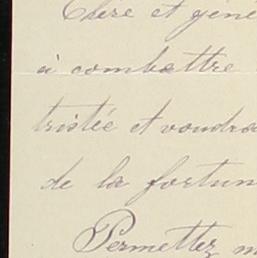 Chère et géné
à combattre
tristée et voudra
de la fortun
Permettez m